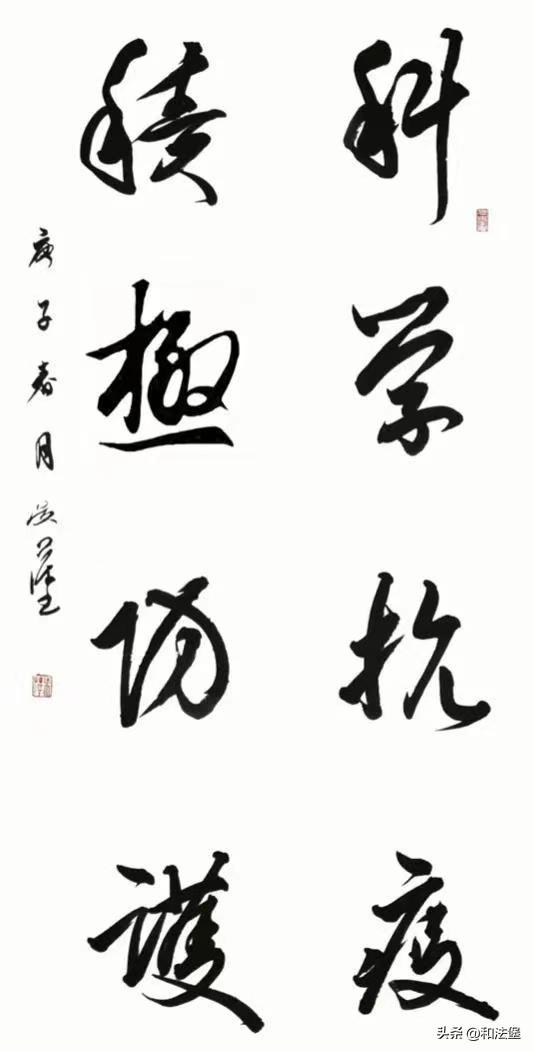 科学抗疫
積極防護
庚子春月
头条 @和法堡